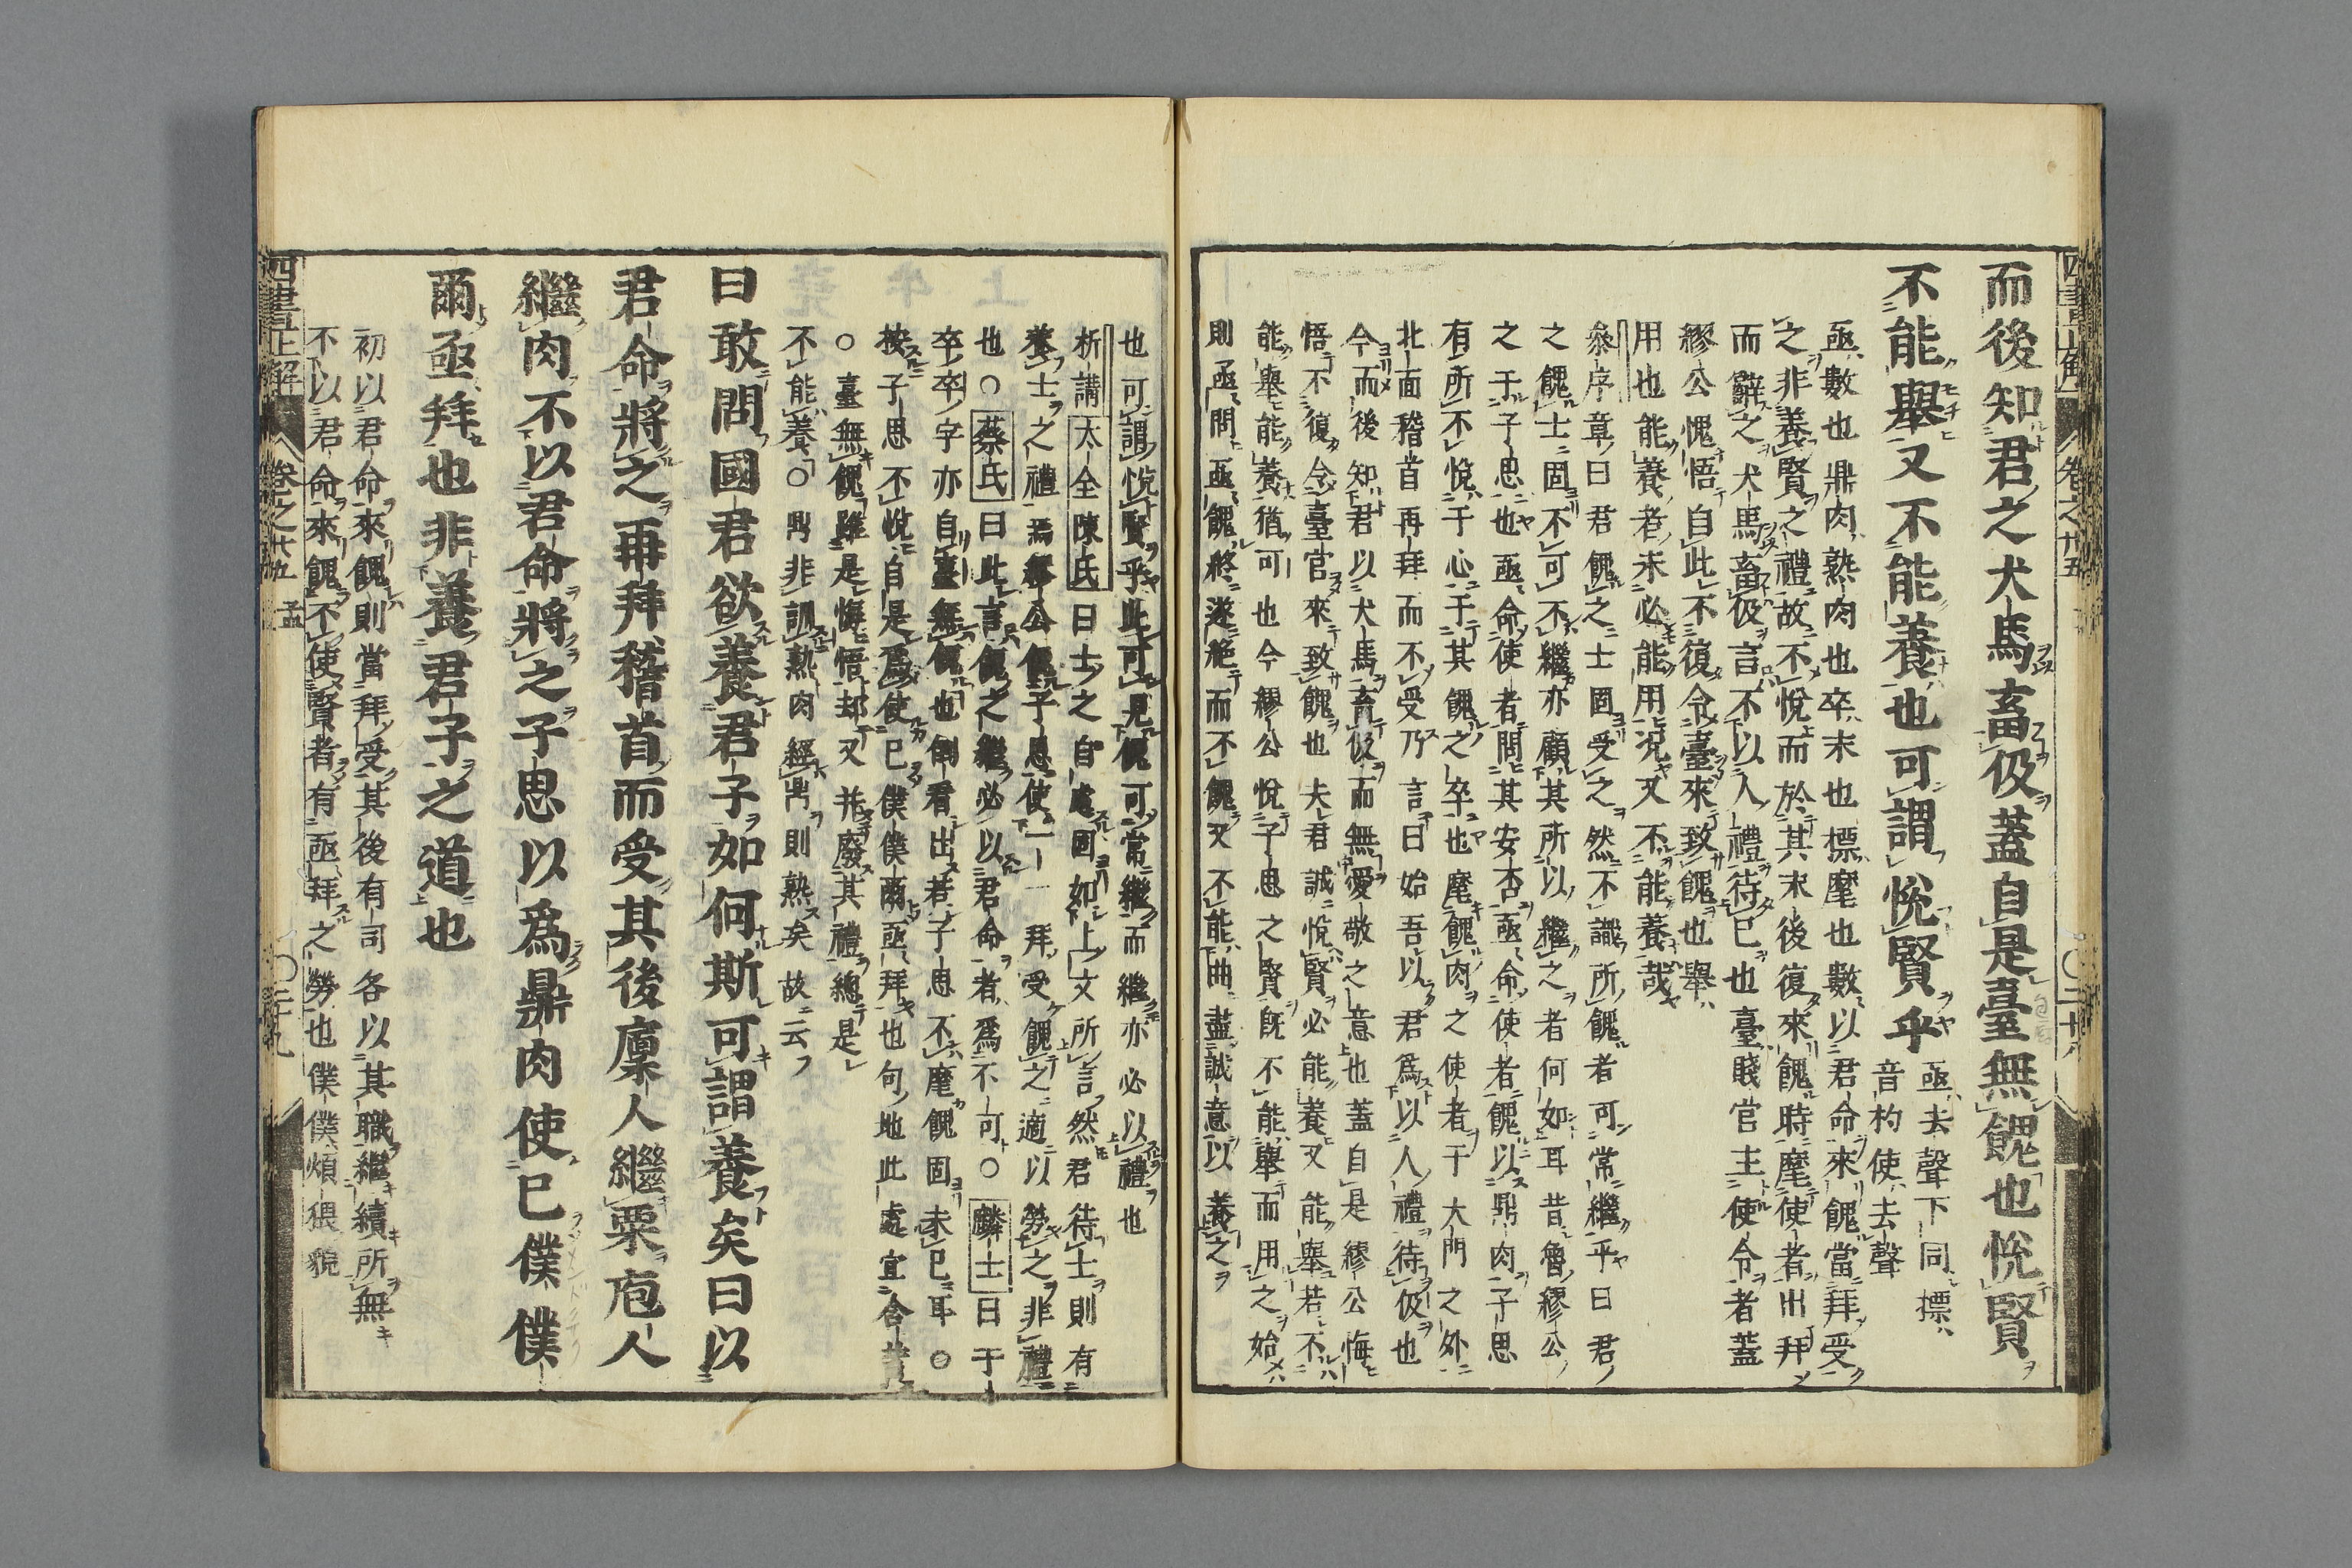 而後知君之犬馬畜伋蓋自是臺無餽也悅賢
不能舉又不能養也可謂悅賢乎
亟去聲下同標
音杓使去聲
亟數也鼎肉熟肉也卒末也標麾也數以君命來餽當拜受
之非養賢之禮故不悅而於其末後復來餽時麾使者出拜
而辭之犬馬畜伋言不以人禮待己也臺賤官主使令者蓋
繆公愧悟自此不復令臺來致餽也舉
用也能養者未必能用況又不能養哉
叅序章曰君餽之士固受之然不識所餽者可常繼乎曰君
之餽士固不可不繼亦顧其所以繼之者何如耳昔魯繆公
之于子思也亟命使者問其安否亟命使者餽以鼎肉子思
有所不悅于心于其餽之卒也麾餽肉之使者于大門之外
北面稽首再拜而不受乃言曰始吾以君爲以人禮待伋也
今而後知君以犬馬畜伋而無愛敬之意也蓋自是繆公悔
悟不復令臺官來致餽也夫君誠悅賢必能養又能舉若不
能舉能養猶可也今繆公悅子思之賢旣不能舉而用之始
則亟問亟餽終遂絕而不餽又不能曲盡誠意以養之
也可謂悅賢乎此可見餽可常繼而繼亦必以禮也
析講太全陳氏曰士之自處固如上文所言然君待士則有
養士之禮焉繆公餽子思使一一拜受餽之適以勞之非禮
也○蔡氏曰此言餽之繼必以君命者爲不可○麟士曰于
卒卒字亦自臺無餽也倒看出若子思不麾餽固未已耳○
按子思不悅自是爲使己僕僕爾亟拜也句地此處宜含蓄
○臺無餽雖是悔悟却又并廢其禮總是
不能養○鼎非訓熟肉經鼎則熟矣故云
曰敢問國君欲養君子如何斯可謂養矣曰以
君命將之再拜稽首而受其後廩人繼粟庖人
繼肉不以君命將之子思以爲鼎肉使己僕僕
爾亟拜也非養君子之道也
初以君命來餽則當拜受其後有司各以其職繼續所無
不以君命來餽不使賢者有亟拜之勞也僕僕煩猥貌
四書正解
卷之廿五 孟
○二十九